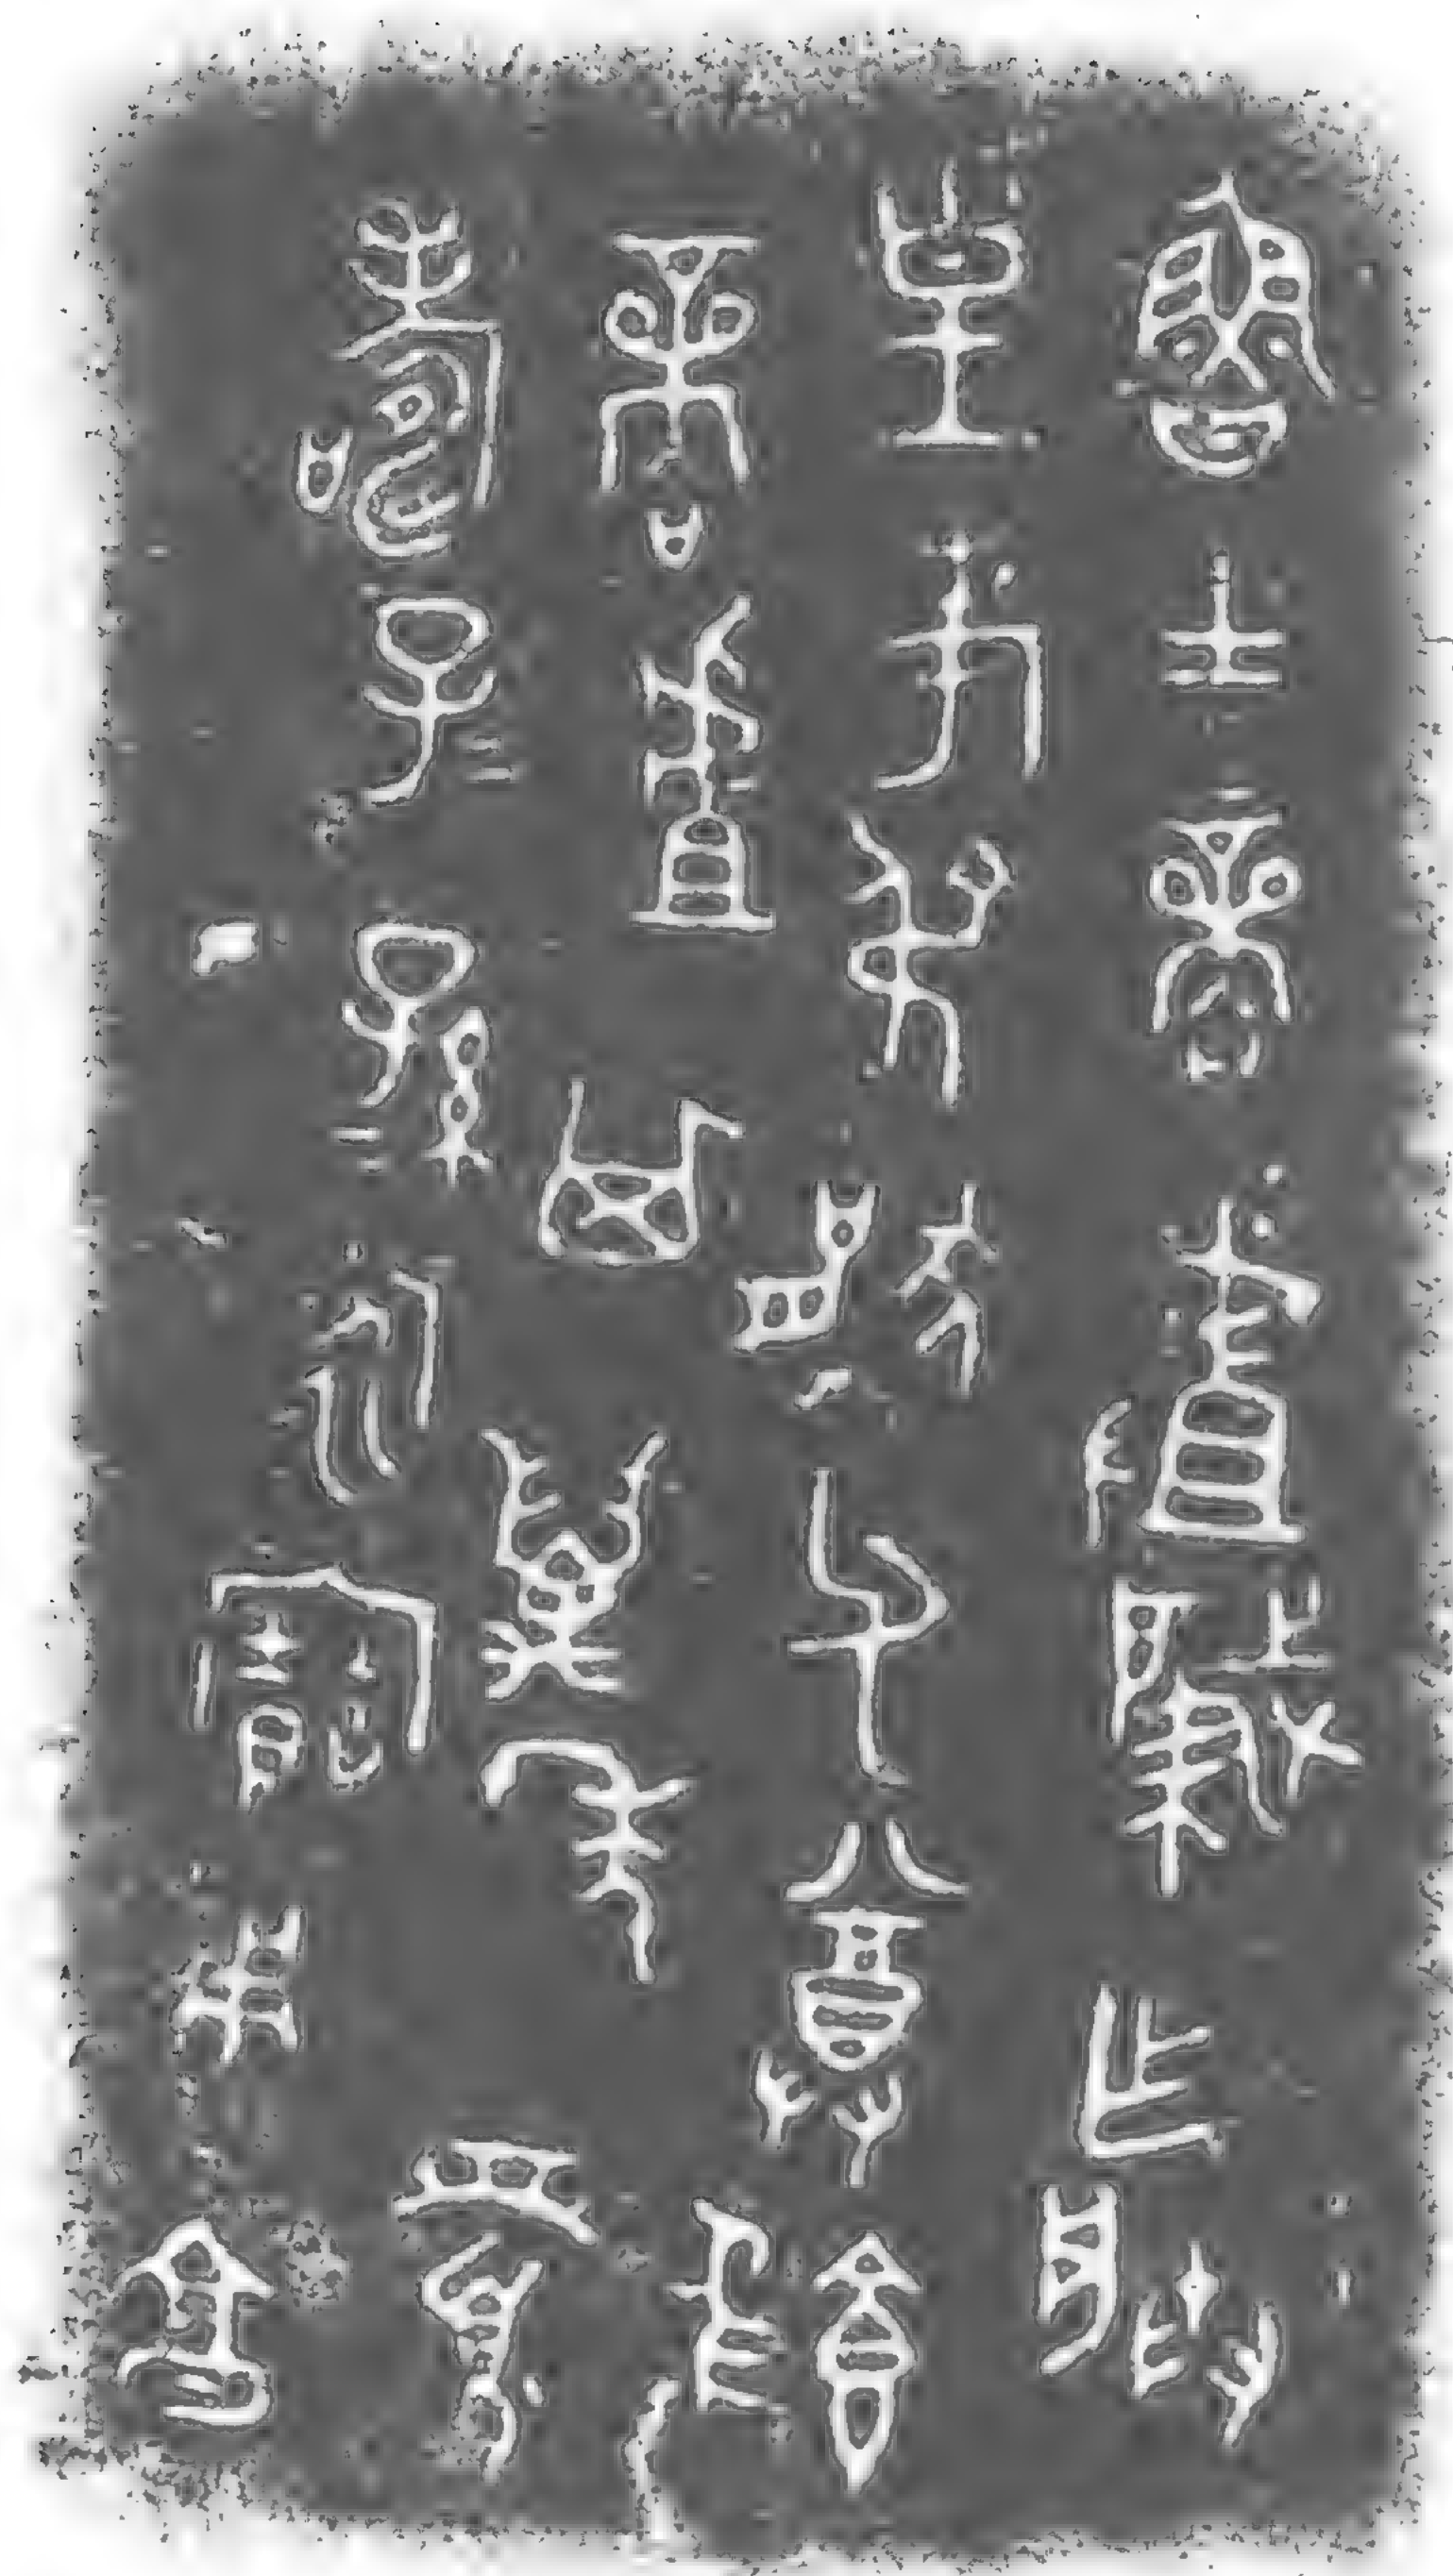 魯士商𠭯肇乍朕
皇考叔猒父尊𣪘
商𠭯其萬年眉
壽子=孫=永寶用享